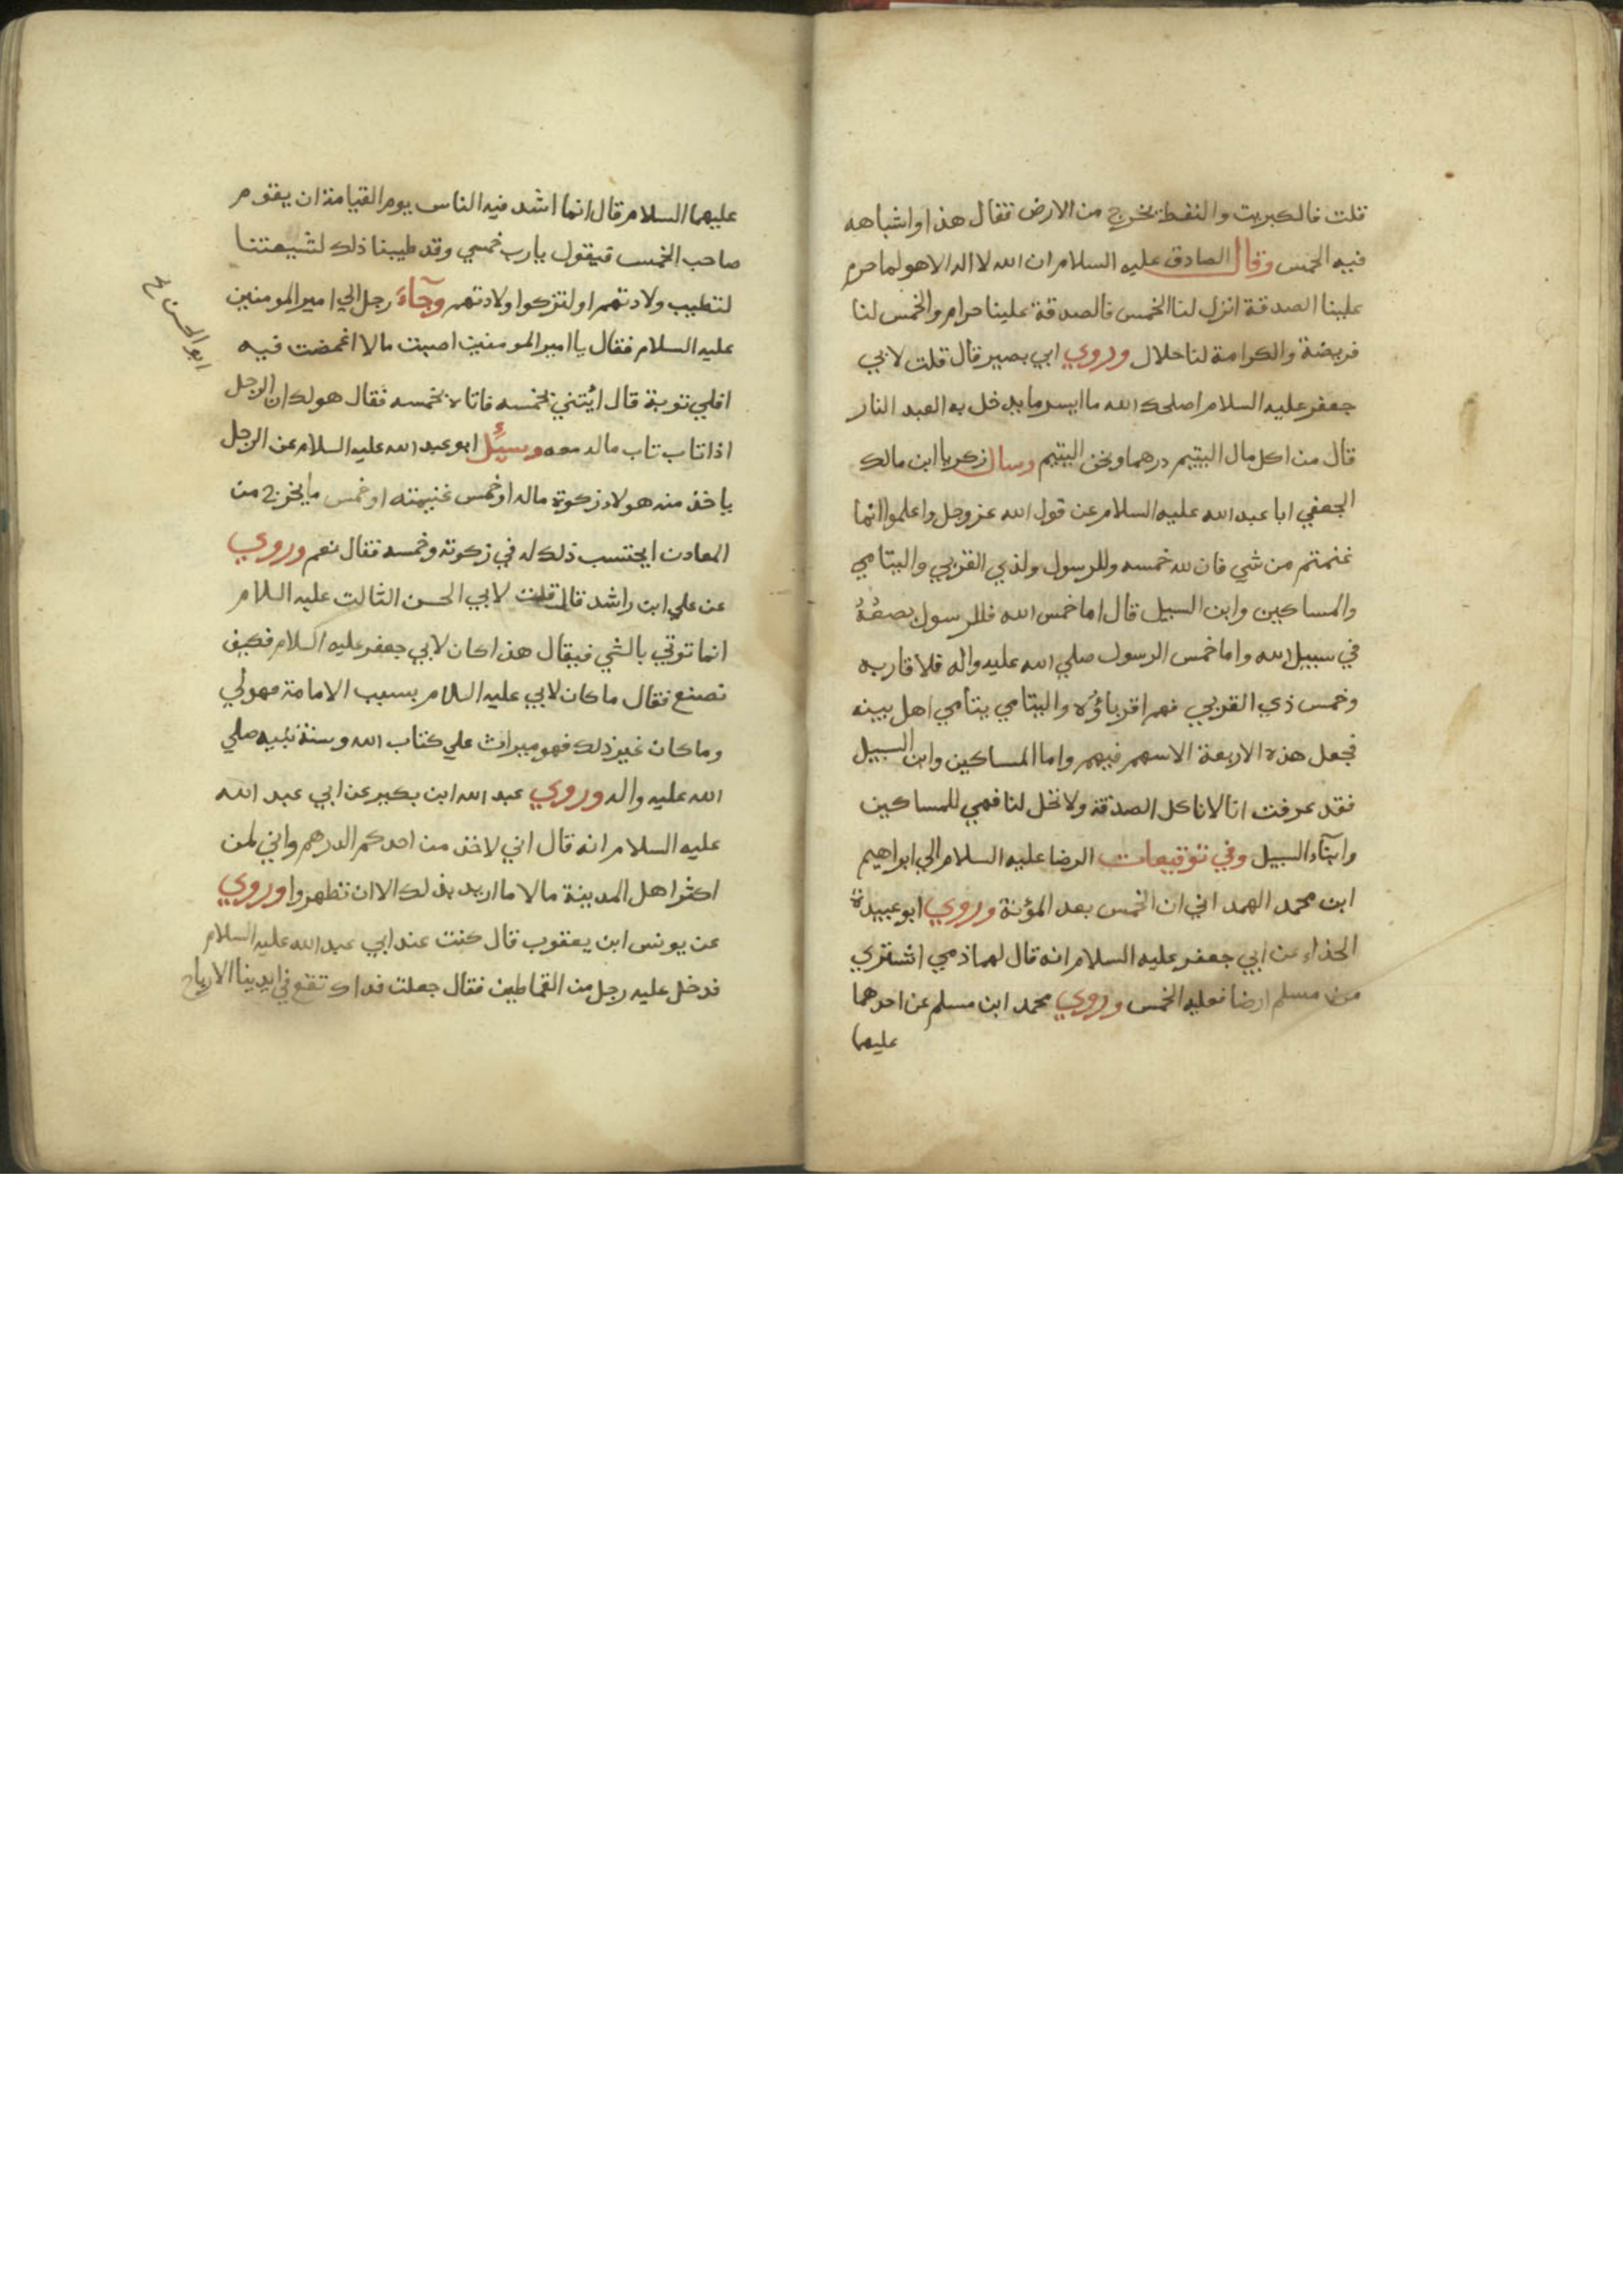 قلت فالكبريت والنفط يخرج من الارض فقال هذا واشباهه
فيه الخمس وقال الصادق عليه السلام ان الله لا اله الا هو لما حرم
علينا الصدقة انزل لنا الخمس فالصدقة علينا حرام والخمس لنا
فريضة والكرامة لنا حلال وروي ابي بصير قال قلت لابي
جعفر عليه السلام اصلحك الله ما ايسر ما يدخل به العبد النار
قال من اكل مال اليتيم درهما ونحن اليتيم وسال زكريا ابن مالك
الجعفي ابا عبد الله عليه السلام عن قول الله عز وجل واعلموا انما
غنمتم من شي فان لله خمسه وللرسول ولذي القربي واليتامي
والمساكين وابن السبيل قال اما خمس الله فللرسول يضعه
في سبيل الله واما خمس الرسول صلي الله عليه واله فلاقاربه
وخمس ذي القربي فهم اقرباؤه واليتامي يتامي اهل بيته
فجعل هذه الاربعة الاسهم فيهم واما المساكين وابن السبيل
فقد عرفت انا لا ناكل الصدقة ولا تحل لنا فهي للمساكين
وابناء السبيل وفي توقيعات الرضا عليه السلام الي ابراهيم
ابن محمد الهمداني ان الخمس بعد المؤنة وروي ابو عبيدة
الحذاء عن ابي جعفر عليه السلام انه قال ايما ذمي اشتري
من مسلم ارضا فعليه الخمس وروي محمد ابن مسلم عن احدهما
عليهما
عليهما السلام قال انما اشد فيه الناس يوم القيامة ان يقوم
صاحب الخمس فيقول يارب خمسي وقد طيبنا ذلك لشيعتنا
لتطيب ولادتهم او لتزكوا ولادتهم وجآء رجل الي امير المومنين
عليه السلام فقال يا امير المومنين اصبت مالا اغمضت فيه
افلي توبة قال ائتني بخمسه فاتاه بخمسه فقال هو لك ان الرجل
اذا تاب تاب ماله معه وسئل ابو عبد الله عليه السلام عن الرجل
ياخذ منه هولاء زكوة ماله او خمس غنيمته او خمس ما يخرج من
المعادن ايحتسب ذلك له في زكوته وخمسه فقال نعم وروي
عن علي ابن راشد قال قلت لابي الحسن الثالث عليه السلام
انما نوتي بالشي فيقال هذا كان لابي جعفر عليه السلام فكيف
نصنع فقال ما كان لابي عليه السلام بسبب الامامة فهو لي
وما كان غير ذلك فهو ميراث علي كتاب الله وسنة نبيه صلي
الله عليه واله وروي عبد الله ابن بكير عن ابي عبد الله
عليه السلام انه قال اني لاخذ من احدكم الدرهم واني لمن
اكثر اهل المدينة مالا ما اريد بذلك الا ان تطهروا وروي
عن يونس ابن يعقوب قال كنت عند ابي عبد الله عليه السلام
فدخل عليه رجل من القماطين فقال جعلت فداك تقع في ايدينا الارباح
ابو الحسن